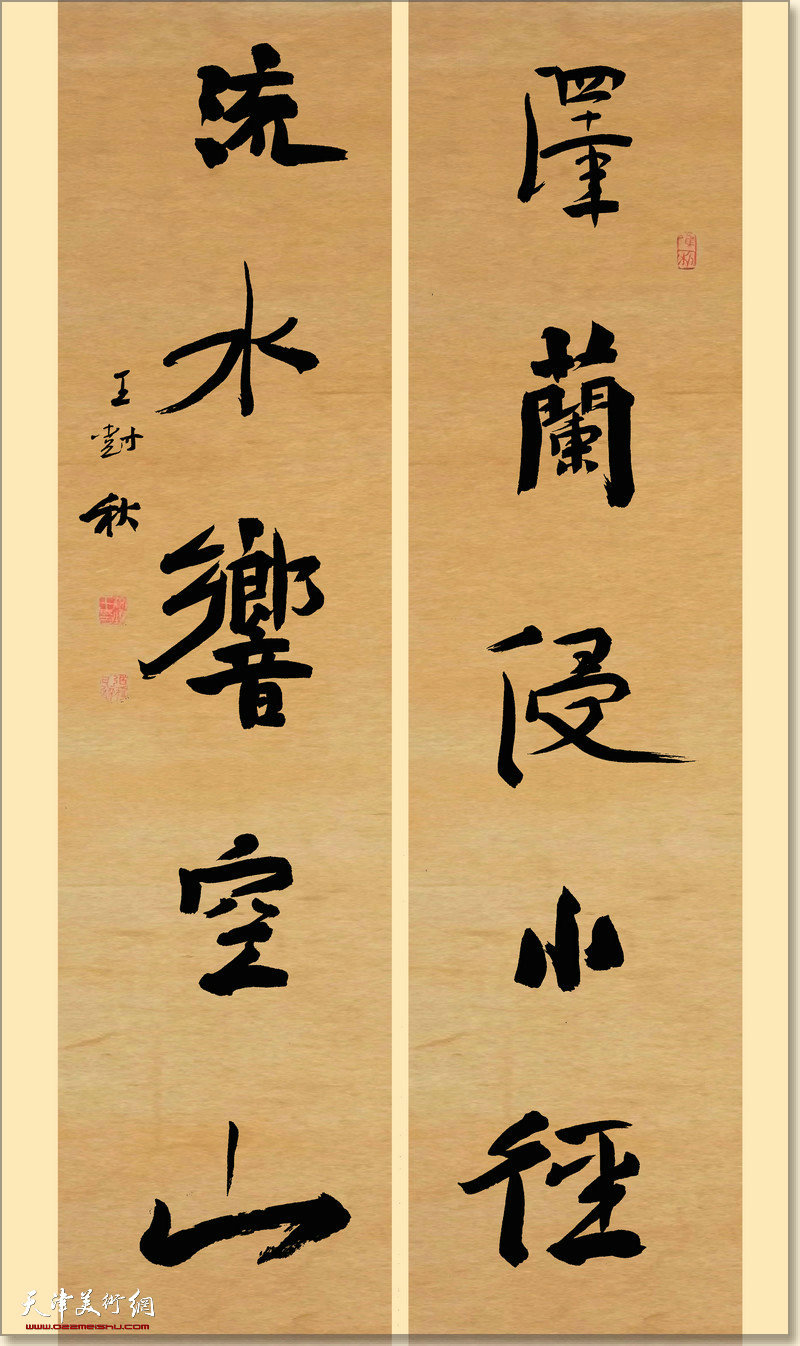 澤蘭侵小徑
流水響空山
王對秋
天津美術網
www.022meishu.com